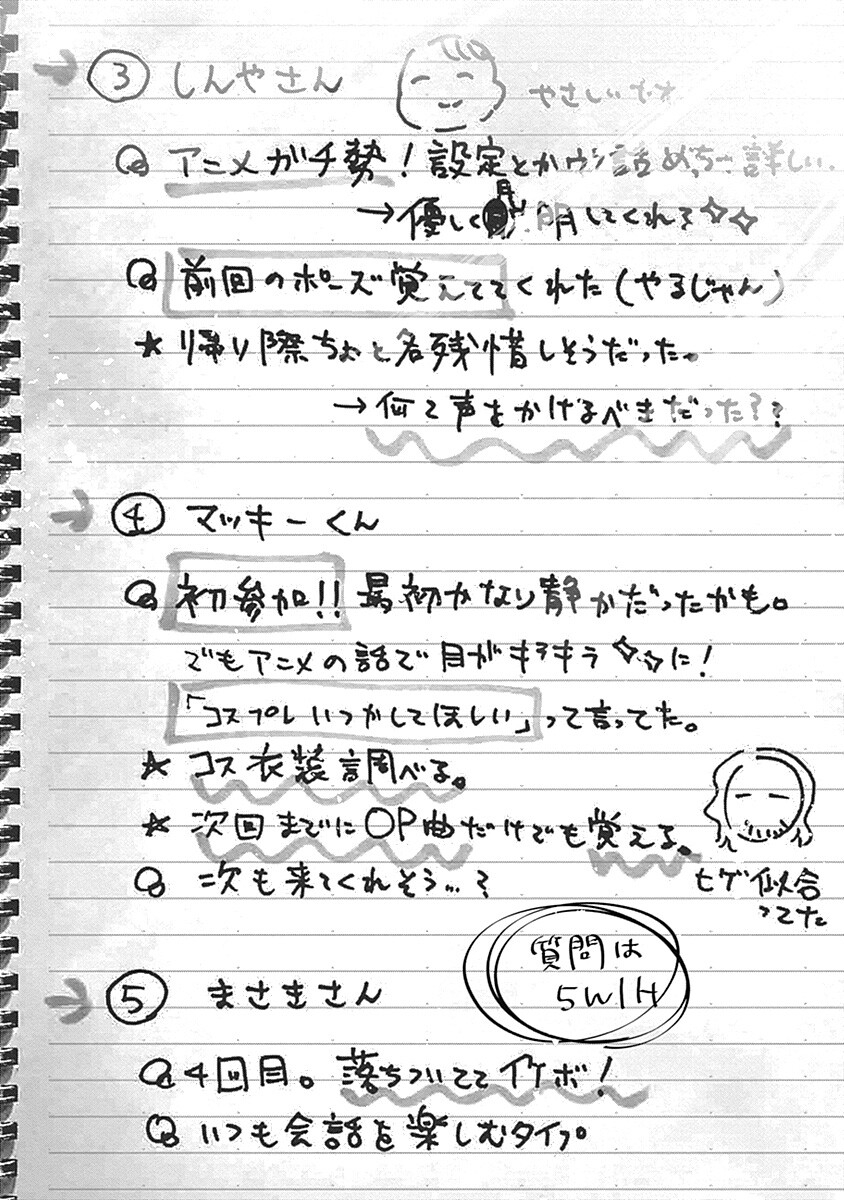 → ③ しんやさん
やさしい
◎ アニメガチ勢!設定とかウラ話めっちゃ詳しい.
→優しく説明してくれる
◎ 前回のポーズ覚えててくれた(やるじゃん)
★ 帰り際ちょっと名残惜しそうだった。
→何て声をかけるべきだった??
→ ④ マッキーくん
◎ 初参加!! 最初かなり静かだったかも。
でもアニメの話で目がキラキラに!
「コスプレいつかしてほしい」って言ってた。
★ コス衣装調べる。
★ 次回までにOP曲だけでも覚える。
ヒゲ似合
ってた
◎ 次も来てくれそう…?
質問は
5W1H
→ ⑤ まさきさん
◎ 4回目。落ちついててイケボ!
◎ いつも会話を楽しむタイプ。